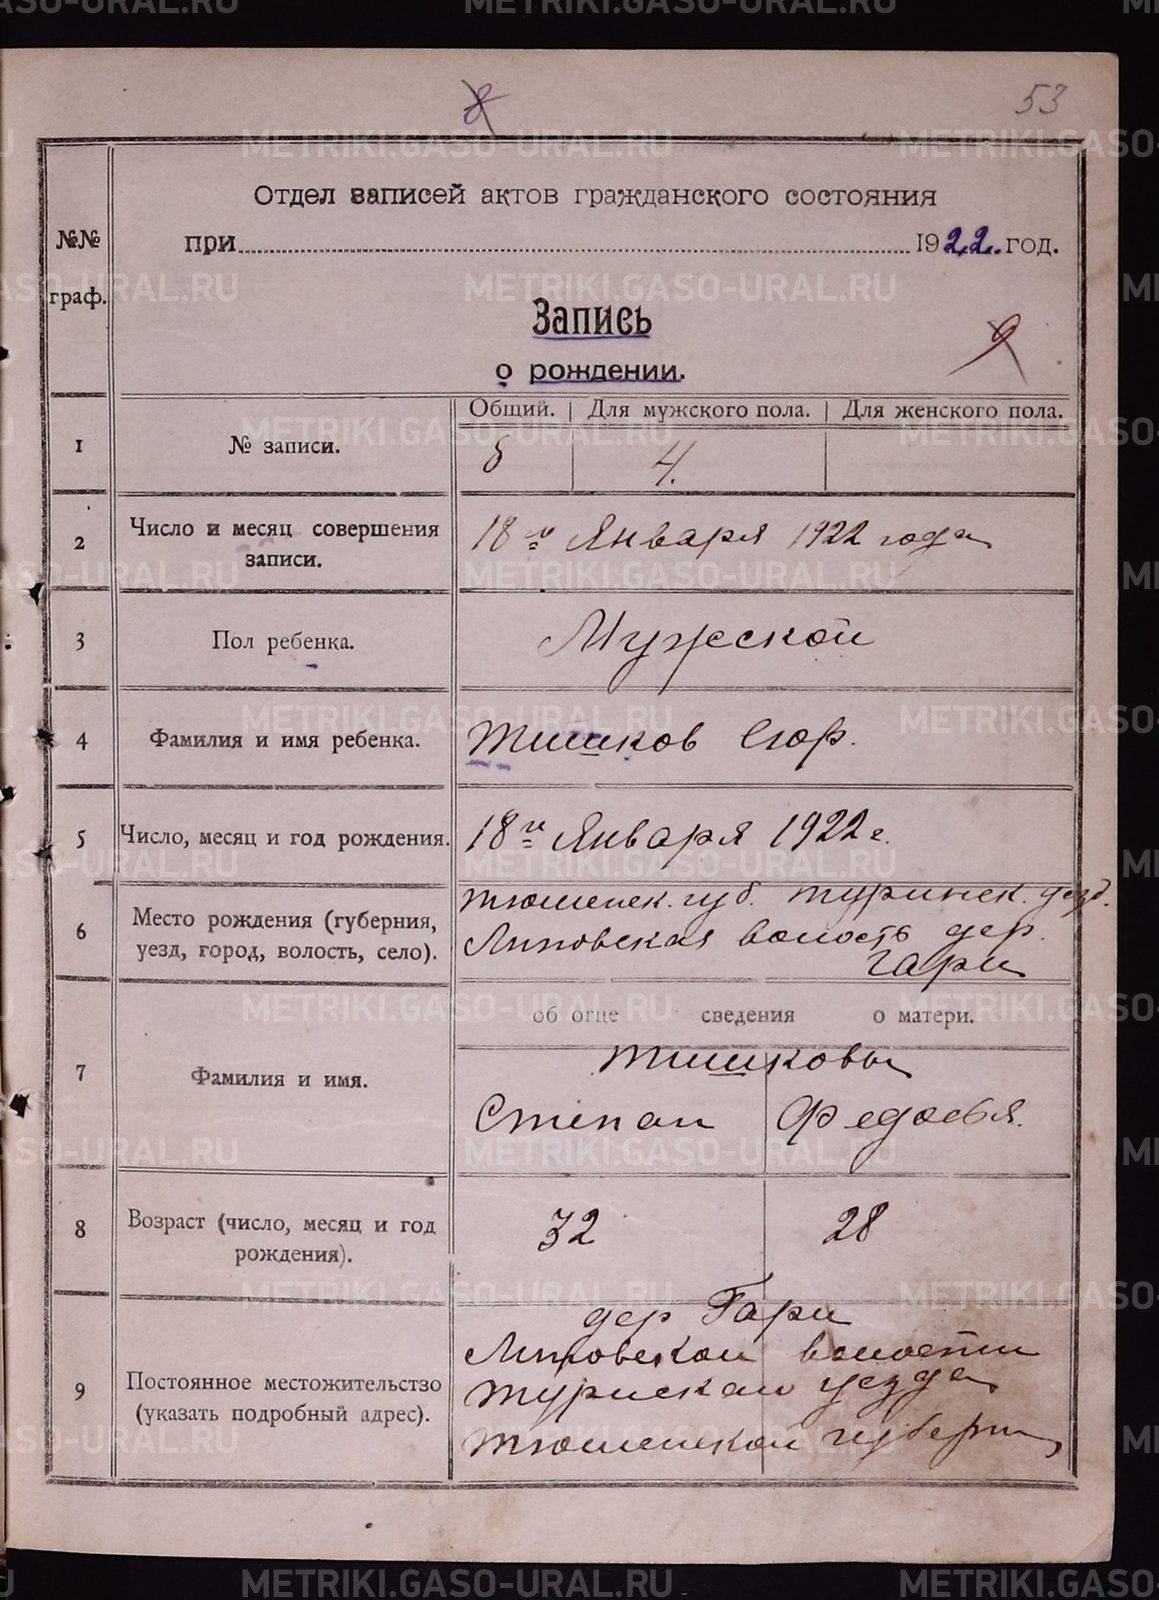 8
53
Отдел записей актов гражданского состояния
№№ при 1922. год.
граф.
Запись
о рождении.
9
Общий. Для мужского пола. Для женского пола.
1 № записи. 4.
2 Число и месяц совершения записи. 18го Января 1922 года
3 Пол ребенка. Мужеской
4 Фамилия и имя ребенка. Тишков Егор.
5 Число, месяц и год рождения. 18го Января 1922 г.
6 Место рождения (губерния, Тюменск. губ. Туринск. уезд.
уезд, город, волость, село). Липовская волость дер.
Гари
об отце сведения о матери.
7 Фамилия и имя. Тишковы
Степан Федосья.
8 Возраст (число, месяц и год рождения). 32 28
дер Гари
Липовской волости
9 Постоянное местожительство Туриской уезда
(указать подробный адрес). Тюменской губерни
METRIKI.GASO-URAL.RU